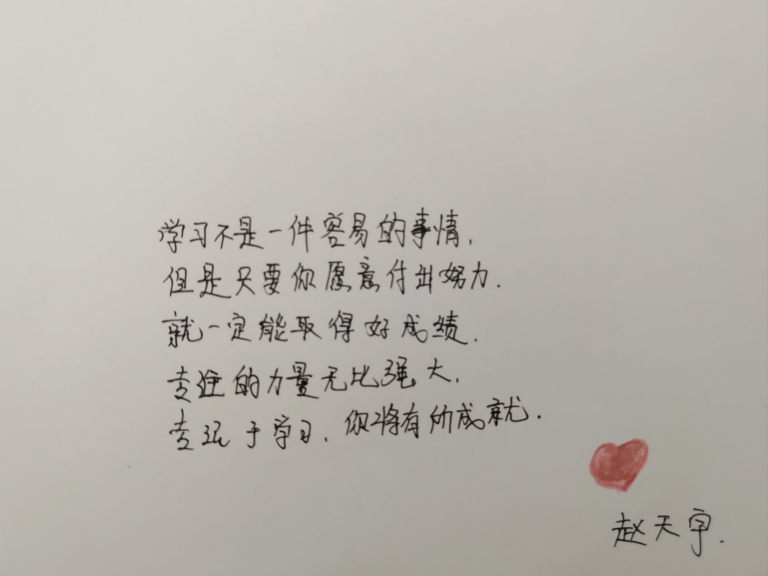 学习不是一件容易的事情,
但是只要你愿意付出努力.
就一定能取得好成绩.
专注的力量无比强大.
专注于学习,你将有所成就.
赵天宇.